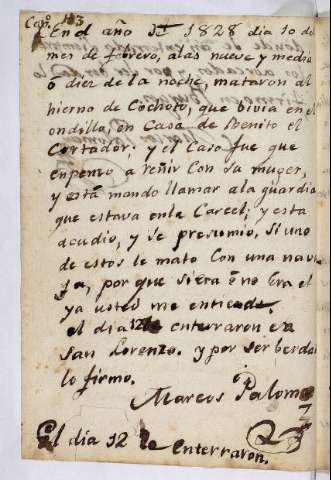 Capº. 113
En el año 1828 dia 10 de
mes de febrero, alas nueve y media
ó diez de la noche, mataron al
hierno de Cochoto, que bivia en el
ondillo, en Casa de Benito el
Cortador; y el Caso fue que
enpenzo a reñir Con su muger,
y esta mando llamar ala guardia
que estava enla Carcel; y esta
acudio, y se presumio, si uno
de estos le mato Con una nava
ja, por que si era ô no Era el
ya usted me entiende,
el dia 12 le enterraron en
San Lorenzo. y por ser berdad
lo firmo.
Marcos Palomo
El dia 12 le enterraron.